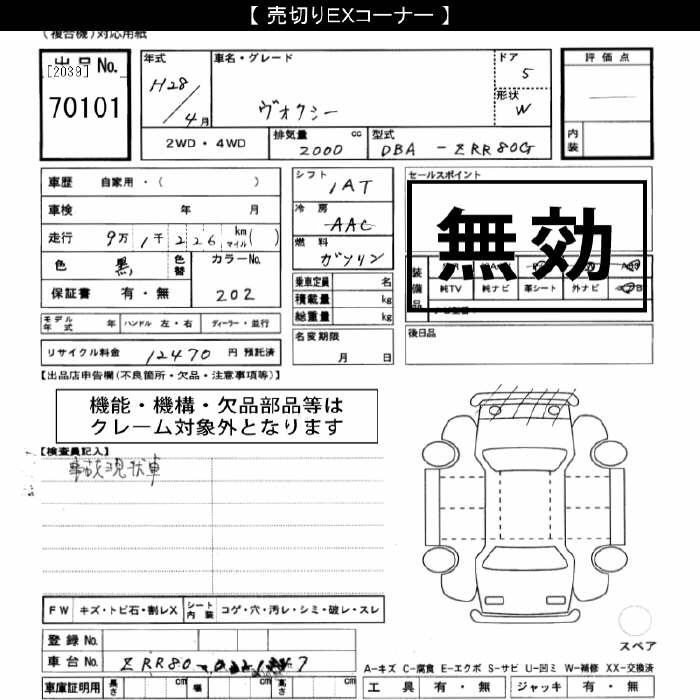 【 売切りEXコーナー 】
(複合機)対応用紙
出品No.
[2039]
70101
年式
H28/4月
車名・グレード
ヴォクシー
ドア
5
形状
W
評価点
内装
2WD・4WD
排気量 2000 cc
型式 DBA-ZRR80G
車歴 自家用・( )
車検 年 月
走行 9万1千226 km マイル ( )
色 黒 色替
カラーNo. 202
保証書 有・無
シフト
IAT
冷房
AAC
燃料
ガソリン
乗車定員 名
積載量 kg
総重量 kg
セールスポイント
無効
装備品
純TV 純ナビ 革シート 外ナビ
モデル年式 年 ハンドル 左・右 ディーラー・並行
リサイクル料金 12470 円 預託済
名変期限
月 日
後日品
【出品店申告欄(不良箇所・欠品・注意事項等)】
機能・機構・欠品部品等は
クレーム対象外となります
【検査員記入】
事故現状車
FW キズ・トビ石・割レX シート内装 コゲ・穴・汚レ・シミ・破レ・スレ
登録No.
車台No. ZRR80-
スペア
A-キズ C-腐食 E-エクボ S-サビ U-凹ミ W-補修 XX-交換済
車庫証明用 長さ cm 幅 cm 高さ cm
工具 有・無 ジャッキ 有・無